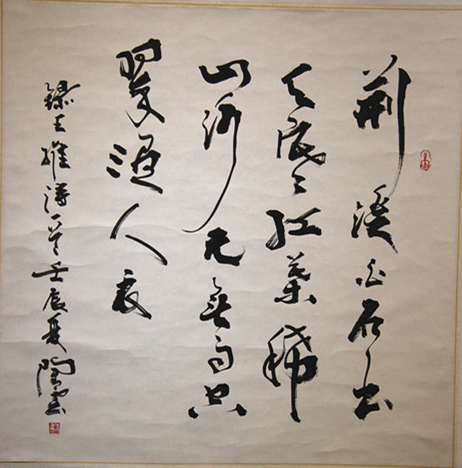 荆溪白石出
天寒红葉稀
山路元無雨空
翠湿人衣
録王維詩一首壬辰夏